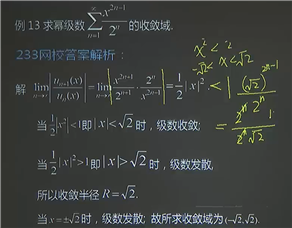 例 13 求幂级数 $\sum_{n=1}^{\infty} \frac{x^{2n-1}}{2^n}$ 的收敛域.
x² < 2
-√2 < x < √2
233网校答案解析：
解 $\lim_{n\to\infty}\left|\frac{u_{n+1}(x)}{u_n(x)}\right| = \lim_{n\to\infty}\left|\frac{x^{2n+1}}{2^{n+1}} \cdot \frac{2^n}{x^{2n-1}}\right| = \frac{1}{2}|x|^2.$
当 $\frac{1}{2}|x|^2<1$ 即 $|x|<\sqrt{2}$ 时，级数收敛；
当 $\frac{1}{2}|x|^2>1$ 即 $|x|>\sqrt{2}$ 时，级数发散，
所以收敛半径 $R=\sqrt{2}$.
当 $x=\pm\sqrt{2}$ 时，级数发散；故所求收敛域为 $(-\sqrt{2},\sqrt{2})$.